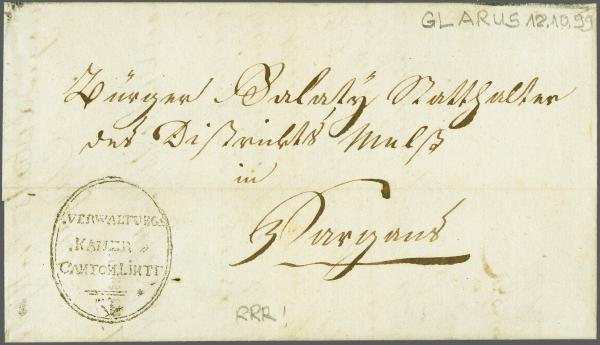 GLARUS 12.10.99
Bürger Balatÿ Statthalter
des Districkts Melß
in
Sargans
VERWALTUNGS
KAMER
CANTON LINTH
RRR!